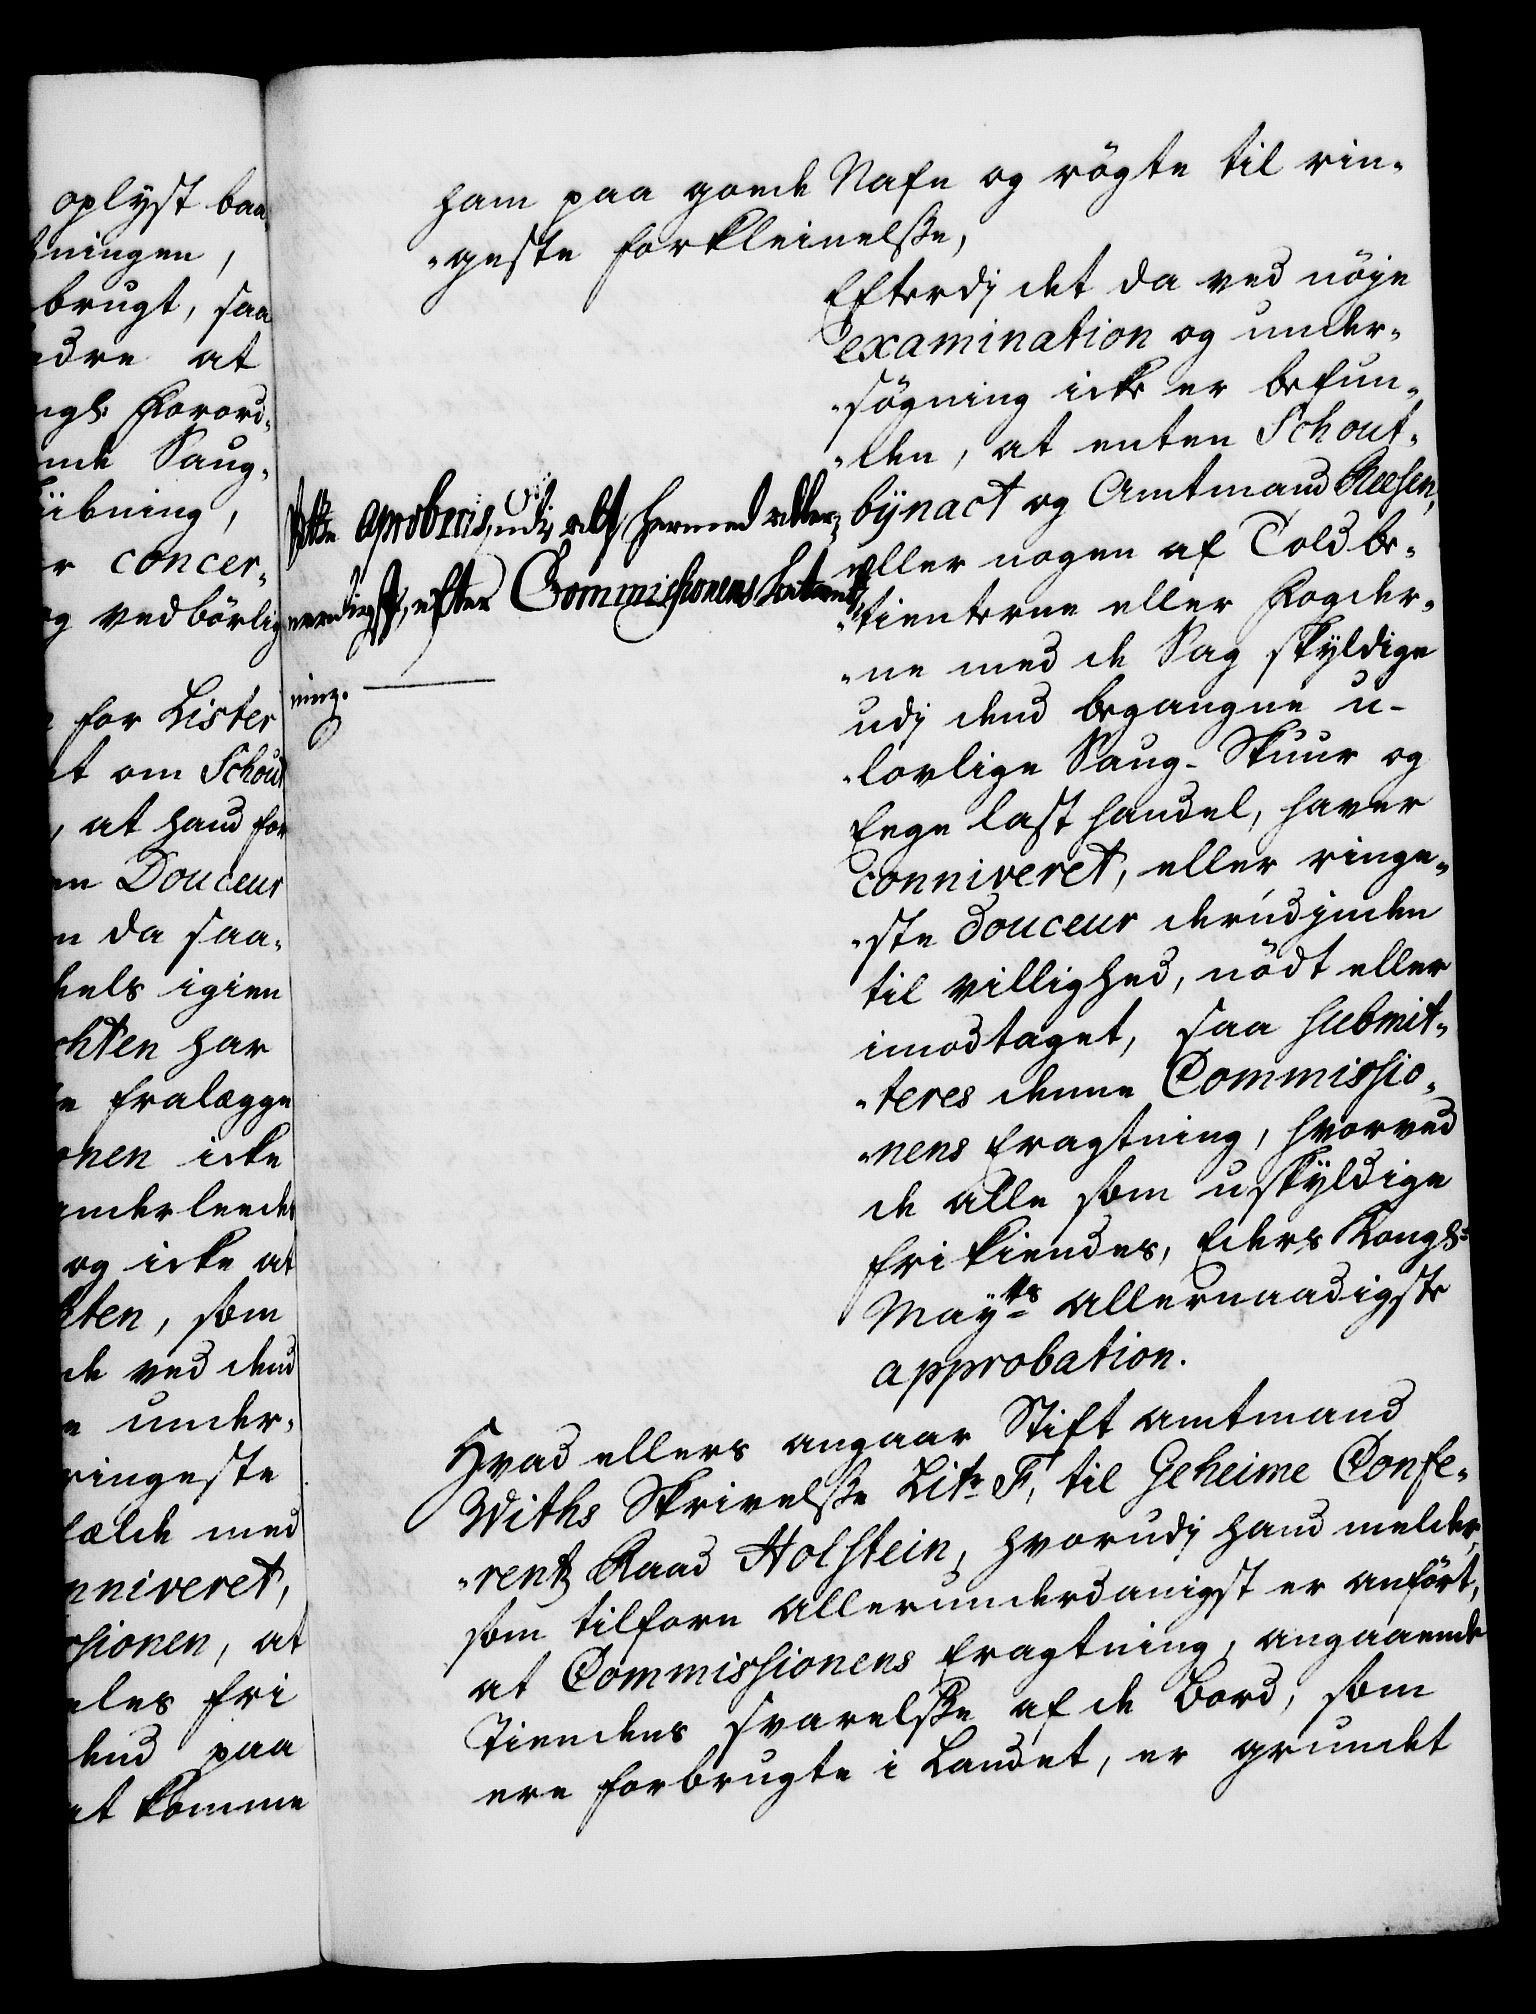 oplyst baa
tningen,
brugt, saa
edre at
ngl. Forord-
ende Saug-
übning,
r concer-
og vedbörlig
for Lister
et om Schout
, at hand for
en Douceur
n da saa-
kels igien
chten har
te fralægge
onen icke
anderleedes
og icke at
kten, som
de ved dend
e under-
ringeste
fælde med
nniveret,
ssionen, at
eles fri
dend paa
et komme
ham paa goede Nafn og rögte til rin-
-geste forkleinelsse,
Efterdj det da ved nöje
examination og under-
-sögning icke er befun-
-den, at enten Schout-
bÿnact og Amtmand Reesen,
eller nogen af Toldbe-
-tienterne eller Fogder-
-ne med de Sag skyldige
udj dend begangne u-
-lovlige Saug-Skuur og
Eege last handel, haver
conniveret, eller ringe-
-ste douceur derudjinden
til villighed, nödt eller
imodtaget, saa submit-
-teres denne Commissio-
-nens Eragtning, hvorved
de alle som uskyldige
frikiendes, Eders Kongl:
Mayts allernaadigste
approbation.
Dette aproberis udj alt hermed aller-
naadigst, efter Commissionens betænk-
ning.
Hvad ellers angaar Stift amtmand
Withs Skrivelsse Litr F, til Geheime Confe-
-rentz Raad Holstein, hvorudj hand melder,
som tilforn allerunderdanigst er anfört,
at Commissionens Eragtning, angaaende
Tiendens svarelsse af de Bord, som
ere forbrugte i Landet, er grundet